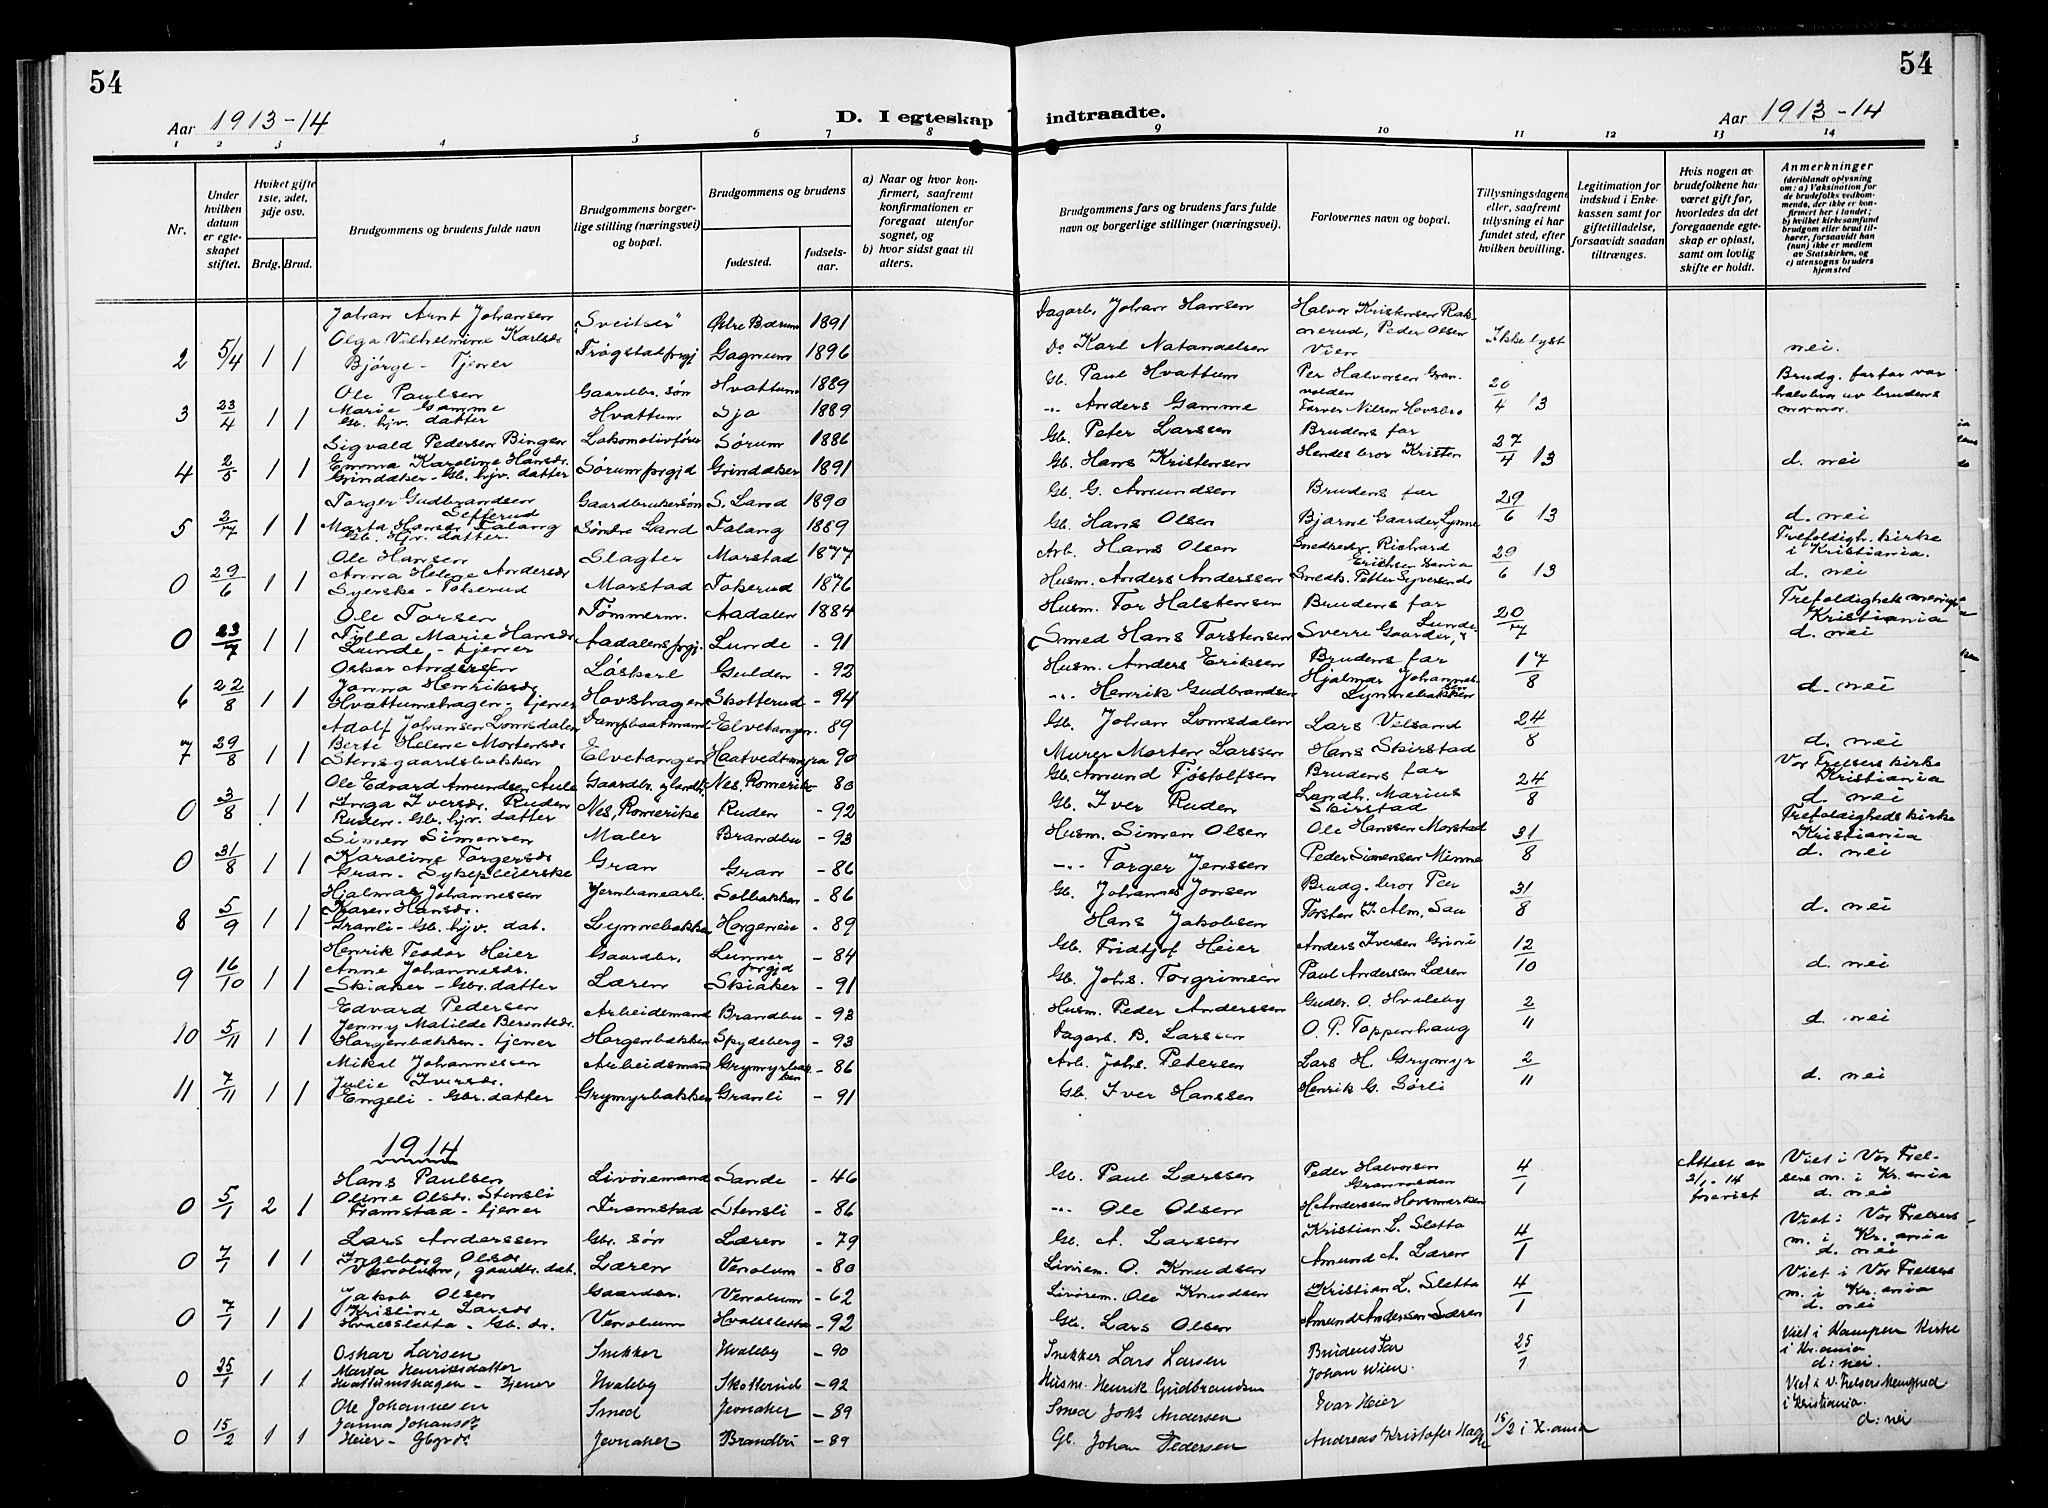 54
54
Aar 1913-14
D. I egteskap indtraadte.
Aar 1913-14
1 2 3 4 5 6 7 8 9 10 11 12 13 14
Nr.
Under hvilken datum er egteskapet stiftet.
Hviket gifte 1ste, 2det, 3dje osv.
Brdg. Brud.
Brudgommens og brudens fulde navn
Brudgommens borgerlige stilling (næringsvei) og bopæl.
Brudgommens og brudens
fødested.
fødselsaar.
a) Naar og hvor konfirmert, saafremt konfirmationen er foregaat utenfor sognet, og
b) hvor sidst gaat til alters.
Brudgommens fars og brudens fars fulde navn og borgerlige stillinger (næringsvei).
Forlovernes navn og bopæl.
Tillysningsdagene eller, saafremt tillysning ei har fundet sted, efter hvilken bevilling.
Legitimation for indskud i Enkekassen samt for giftetilladelse, forsaavidt saadan tiltrænges.
Hvis nogen av brudefolkene har været gift før, hvorledes da det foregaaende egteskap er opløst, samt om lovlig skifte er holdt.
Anmerkninger
(deriblandt oplysning om: a) Vaksination for de brudefolks vedkommende, der ikke er konfirmert her i landet; b) hvilket kirkesamfund brudgom eller brud tilhører, forsaavidt han (hun) ikke er medlem av Statskirken, og c) utensogns bruders hjemsted
Johan Arnt Johansen "Sveitser" Østre Bærum 1891 Dagarb. Johan Hansen Halvor Kristensen
2 5/4 1 1 Olga Vilhelmine Karlsdr. Bjørge - Tjener Trøgstad prgj. Gagnum 1896 Do Karl Natanaelsen Peder Olsen Vien Ikke lyst nei.
Ole Paulsen Gaardbr. søn Hvattum 1889 Gb. Paul Hvattum Per Halvorsen Granvolden Brudg. farfar var
3 23/4 1 1 Marie Gamme Gb. hjv. datter Hvattum Sja 1889 -"- Anders Gamme Nilsen Hovsbro 20/4 13 halvbror av brudens mormor.
Sigvald Pedersen Bingen Lokomotivfører Sørum 1886 Gb. Peter Larssen Brudens far
4 2/5 1 1 Emma Karoline Hansdr. Grindaker - Gb. hjv. datter Sørum prgjd Grindaker 1891 Gb. Hans Kristensen Hendes bror Kristen 27/4 13 d. nei
Torger Gudbrandsen Sefferud Gaardbrukersøn S. Land 1890 Gb. G. Amundsen Brudens far
5 2/7 1 1 Marta Hansdr Falang Gb. hjv. datter. Søndre Land Falang 1889 Gb. Hans Olsen Bjarne Gaarder, Lynne 29/6 13 d. nei
Ole Hansen Slagter Morstad 1877 Arb. Hans Olsen Smedbedr. Richard Erichsen Trefoldigh. kirke i Kristiania.
0 29/6 1 1 Anna Helene Andersdr Syerske - Tokerud Morstad Tokerud 1876 Husm. Anders Anderssen Smedk. Petter Syversen do 29/6 13 d. nei
Ole Torsen Tømmerm. Aadalen 1884 Husm. Tor Halstensen Brudens far Trefoldighets menigh. Kristiania
0 23/7 1 1 Tilla Marie Hansdr Lunde - tjener Aadalens prgj. Lunde - 91 Smed Hans Torstensen Sverre Gaarder, Lunde 20/7 d. nei
Oskar Andersen Løskarl Gulden - 92 Husm. Anders Eriksen Brudens far
6 22/8 1 1 Janna Henriksdr Hvattumshagen - tjener Hovshagen Skotterud - 94 -"- Henrik Gudbrandsen Hjalmar Johannessen Lynnebakken 17/8 d. nei
Adolf Johansen Lomsdalen Dampbaatmand Elvetangen - 89 Gb. Johan Lomsdalen Lars Velsand
7 29/8 1 1 Berte Helene Mortensdr Stensgaardsbakken Elvetangen Haatvedtmyra - 90 Murer Morten Larssen Hans Skirstad 24/8 d. nei
Ole Edvard Amundsen Aule Gaardbr. Nes, Romerike - 80 Gb. Amund Tjøstolfsen Brudens far Vor Frelsers kirke Kristiania
0 3/8 1 1 Inga Iversdr. Ruden Ruden - Gb. hjv. datter Nes, Romerike Ruden - 92 Gb. Iver Ruden Landh. Marius Skirstad 24/8 d. nei
Simen Simensen Maler Brandbu - 93 Husm. Simen Olsen Ole Hanssen Morstad Trefoldigheds kirke Kristiania
0 31/8 1 1 Karoline Torgersdr Gran - Sykepleierske Gran Gran - 86 -"- Torger Jenssen Peder Simensen Minne 31/8 d. nei
Hjalmar Johannessen Jernbanearb. Solbakken - 86 Gb. Johannes Jonsen Brudg. bror Per
8 5/9 1 1 Karen Hansdr. Granli - Gb. hjv. dat. Lynnebakken Horgeneie - 89 Hans Jakobsen Torsten J. Alm, Sau 31/8 d. nei
Henrik Teodor Heier Gaardbr. Lunner prgjd - 84 Gb. Fridtjof Heier Anders Iversen Grini
9 16/10 1 1 Anne Johannesdr. Skiaker - Gbr. datter Læren Skiaker - 91 Gb. Johs. Torgrimsen Paul Anderssen Læren 12/10 d. nei
Edvard Pedersen Arbeidsmand Brandbu - 93 Husm. Peder Anderssen Gudbr. O. Hvaleby
10 5/11 1 1 Jenny Matilde Berentsdr. Horgenbakken - tjener Horgenbakken Spydeberg - 93 Dagarb. B. Larssen O. P. Toppenhaug 2/11 d. nei
Mikal Johannessen Arbeidsmand Grymyrbakken - 86 Arb. Johs. Petersen Lars H. Grymyr
11 7/11 1 1 Julie Iversdr. Engeli - Gbr. datter Grymyrbakken Granli - 91 Gb. Iver Hanssen Henrik G. Sørli 2/11 d. nei
1914
Hans Paulsen Livøremand Sande - 46 Gb. Paul Larssen Peder Halvorsen Granvolden Attest av 2/1-14 forevist Viet i Vor Frelsers m. i Kr.ania
0 5/1 2 1 Oline Olsdr. Stensli Framstad - tjener Framstad Stensli - 86 -"- Ole Olsen H. Anderssen Hovsmarken 4/1 d. nei
Lars Anderssen Gbr. søn Læren - 79 Gb. A. Larssen Kristian L. Sletta Viet i Vor Frelsers m. i Kr.ania
0 7/1 1 1 Ingeborg Olsdr Venolum, gaardbr. dat. Læren Venolum - 80 Livørem. O. Knudsen Amund A. Læren 4/1 d. nei
Jakob Olsen Gaardbr. Venolum - 62 Livørem. Ole Knudsen Kristian L. Sletta Viet i Vor Frelsers m. i Kr.ania
0 7/1 1 1 Kristine Larsdr Hvalssletta - Gb. dr. Venolum Hvalssletta - 92 Gb. Lars Olsen Amund Anderssen Læren 4/1 d. nei
Oskar Larsen Snekker Hvaleby - 90 Snekker Lars Larsen Brudens Far Viet i Kampen Kirke i Kr.ania
0 25/1 1 1 Marta Henriksdatter Hvattumshagen - Tjener Hvaleby Skotterud - 92 Husm. Henrik Gudbrandsen Johan Wien. 25/1 d: nei.
Ole Johannesen Smed Jevnaker - 89 Smed Johs Andersen Ivar Heier Viet i V. Frelsers Menighed i Kristiania.
0 15/2 1 1 Janna Johansdr Heier - Gbrdr. Jevnaker Brandbu - 89 Gb. Johan Pedersen Andreas Kristofer 15/2 i X.ania d: nei